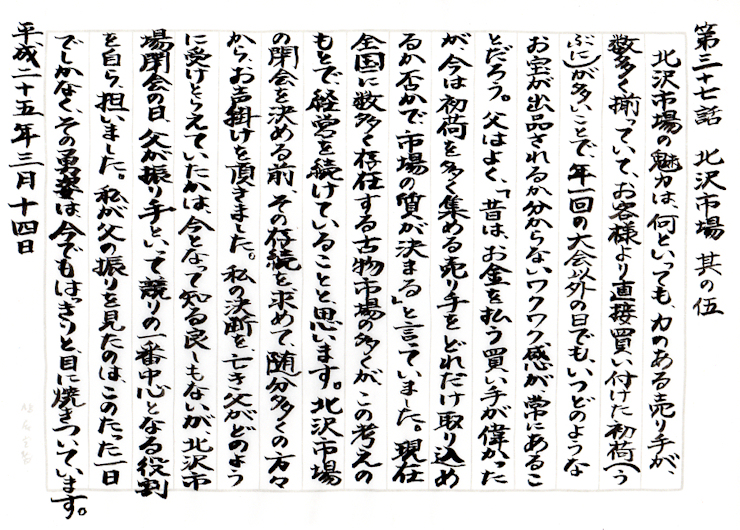 第三十七話　北沢市場　其の伍
北沢市場の魅力は、何といっても、力のある売り手が、
数多く揃っていて、お客様より直接買い付けた初荷（う
ぶに）が多いことで、年一回の大会以外の日でも、いつどのような
お宝が出品されるか分からないワクワク感が、常にあるこ
とだろう。父はよく、「昔は、お金を払う買い手が偉かった
が、今は初荷を多く集める売り手を、どれだけ取り込め
るか否かで、市場の質が決まる」と言っていました。現在
全国に数多く存在する古物市場の多くが、この考えの
もとで経営を続けていることと、思います。北沢市場
の閉会を決める前、その存続を求めて、随分多くの方々
から、お声掛けを頂きました。私の決断を、亡き父がどのよう
に受けとらえていたかは、今となって知る良しもないが、北沢市
場閉会の日、父が振り手といって競りの一番中心となる役割
を自ら、担いました。私が父の振りを見たのは、このたった一日
でしかなく、その勇姿は、今でもはっきりと、目に焼きついています。
平成二十五年三月十四日